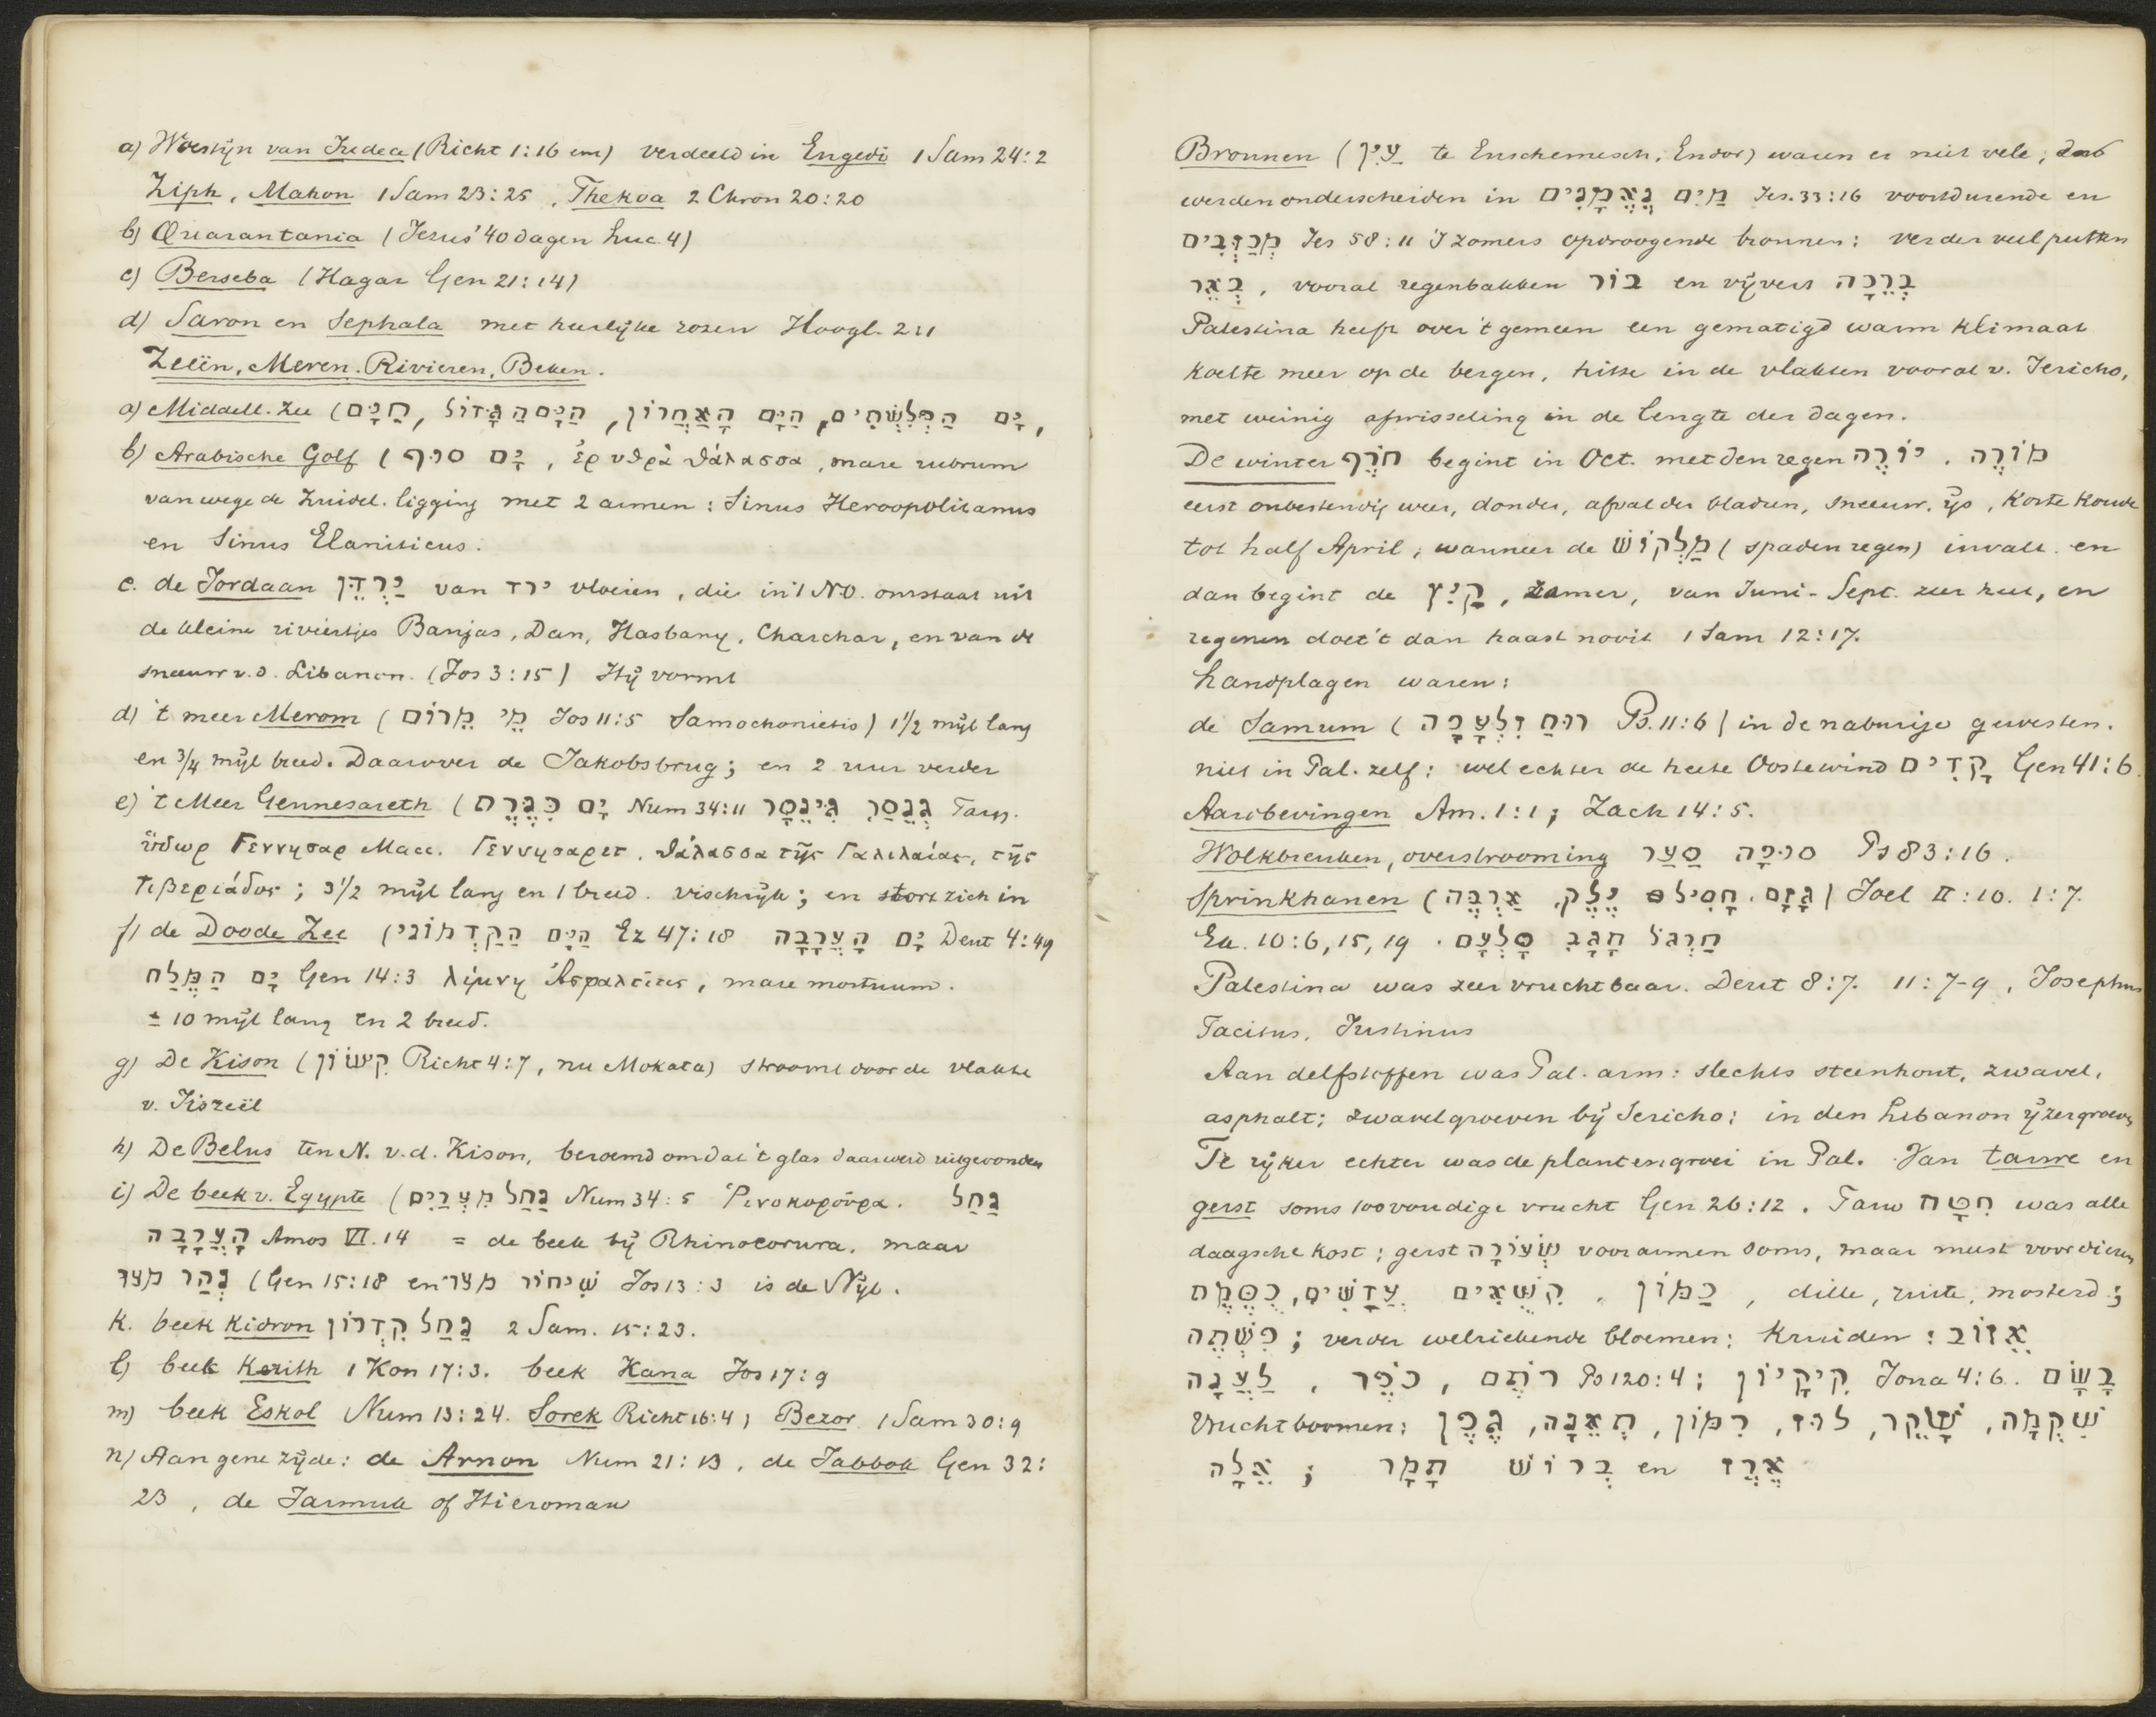 a) Woestijn van Judea (Richt 1:16 enz) verdeeld in Engedi 1 Sam 24:2
Ziph, Mahon 1 Sam 23:25, Thekoa 2 Chron 20:20
b) Quarantania (Jezus' 40 dagen Luc. 4)
c) Berseba (Hagar Gen 21:14)
d) Saron en Sephala met heerlijke rozen Hoogl. 2:1
Zeeën, Meren, Rivieren, Beken.
a) Middell. Zee (הַיָּם, הַיָּם הַגָּדוֹל, הַיָּם הָאַחֲרוֹן, יָם הַפְּלִשְׁתִּים,
b) Arabische Golf (יָם סוּף, ἐρυθρὰ θάλασσα, mare rubrum
van wege de Zuidel. ligging met 2 armen: Sinus Heroopolitanus
en Sinus Elaniticus.
c. de Jordaan יַרְדֵּן van ירד vloeien, die in 't N.O. ontstaat uit
de kleine riviertjes Banjas, Dan, Hasbany, Charchar, en van de
sneeuw v.d. Libanon. (Jos 3:15) Hij vormt
d) 't meer Merom (מֵי מֵרוֹם Jos 11:5 Samochonietis) 1½ mijl lang
en ¾ mijl breed. Daarover de Jakobsbrug; en 2 uur verder
e) 't Meer Gennesareth (יָם כִּנֶּרֶת Num 34:11 גִּינֵסָר גְּנֵסַר Targ.
ὕδωρ Γεννησαρ Macc. Γεννησαρετ, θάλασσα τῆς Γαλιλαίας, τῆς
Τιβεριάδος; 3½ mijl lang en 1 breed. vischrijk; en stort zich in
f) de Doode Zee (הַיָּם הַקַּדְמוֹנִי Ez 47:18 יָם הָעֲרָבָה Deut 4:49
יָם הַמֶּלַח Gen 14:3 λίμνη Ἀσφαλτῖτις, mare mortuum.
± 10 mijl lang en 2 breed.
g) De Kison (קִישׁוֹן Richt 4:7, nu Mokata) stroomt door de vlakte
v. Jisreël
h) De Belus ten N. v.d. Kison, beroemd omdat 't glas daar werd uitgevonden
i) De beek v. Egypte (נַחַל מִצְרַיִם Num 34:5 Ῥινοκορούρα. נַחַל
הָעֲרָבָה Amos VI.14 = de beek bij Rhinocorura. maar
נְהַר מצר (Gen 15:18 en שִׁיחוֹר מצר Jos 13:3 is de Nijl.
k. beek Kidron נַחַל קִדְרוֹן 2 Sam. 15:23.
l) beek Kerith 1 Kon 17:3. beek Kana Jos 17:9
m) beek Eskol Num 13:24. Sorek Richt 16:4) Bezor 1 Sam 30:9
n) Aan gene zijde: de Arnon Num 21:13, de Jabbok Gen 32:
23, de Jarmuk of Hieromax
Bronnen (עַיִן te Enschemesch, Endor) waren er niet vele;
werden onderscheiden in מַיִם נֶאֱמָנִים Jes. 33:16 voortdurende en
מְכַזְּבִים Jes 58:11 's zomers opdroogende bronnen; verder veel putten
בְּאֵר, vooral regenbakken בּוֹר en vijvers בְּרֵכָה
Palestina heeft over 't gemeen een gematigd warm klimaat
koelte meer op de bergen, hitte in de vlakten vooral v. Jericho,
met weinig afwisseling in de lengte der dagen.
De winter חֹרֶף begint in Oct. met den regen יוֹרֶה, מוֹרֶה
eerst onbestendig weer, donder, afval der bladen, sneeuw, ijs, korte koude
tot half April, wanneer de מַלְקוֹשׁ (spaden regen) invalt en
dan begint de קַיִץ, zomer, van Juni-Sept. zeer heet, en
regenen doet 't dan haast nooit 1 Sam 12:17.
Landplagen waren:
de Samum (רוּחַ זִלְעָפָה Ps. 11:6) in de naburige gewesten.
niet in Pal. zelf; wel echter de heete Oostewind קָדִים Gen 41:6
Aardbevingen Am. 1:1; Zach 14:5.
Wolkbreuken, overstrooming סַעַר סוּפָה Ps 83:16.
Sprinkhanen (גָּזָם, חָסִיל יֶלֶק, אַרְבֶּה) Joel II:10. 1:7.
Ex. 10:6, 15, 19. חַרְגֹּל חָגָב סָלְעָם
Palestina was zeer vruchtbaar. Deut 8:7. 11:7-9, Josephus
Tacitus, Justinus
Aan delfstoffen was Pal. arm: slechts steenhout, zwavel,
asphalt; zwavelgroeven bij Jericho; in den Libanon ijzergroeven
Te rijker echter was de plantengroei in Pal. Van tarwe en
gerst soms 100 voudige vrucht Gen 26:12. Tarw חִטָּה was alle
daagsche kost; gerst שְׂעוֹרָה voor armen soms, maar meest voor dieren
כֻּסֶּמֶת, עֲדָשִׁים, קִשֻּׁאִים, כַּמּוֹן, dille, ruite, mosterd;
פִּשְׁתָּה; verder welriekende bloemen; kruiden: אֵזוֹב
לַעֲנָה, כֹּפֶר, רֹתֶם Ps 120:4; קִיקָיוֹן Jona 4:6. בָּשָׂם
Vruchtboomen: גֶּפֶן, תְּאֵנָה, רִמּוֹן, לוּז, שָׁקֵד, שִׁקְמָה,
אֵלָה; תָּמָר בְּרוֹשׁ en אֶרֶז